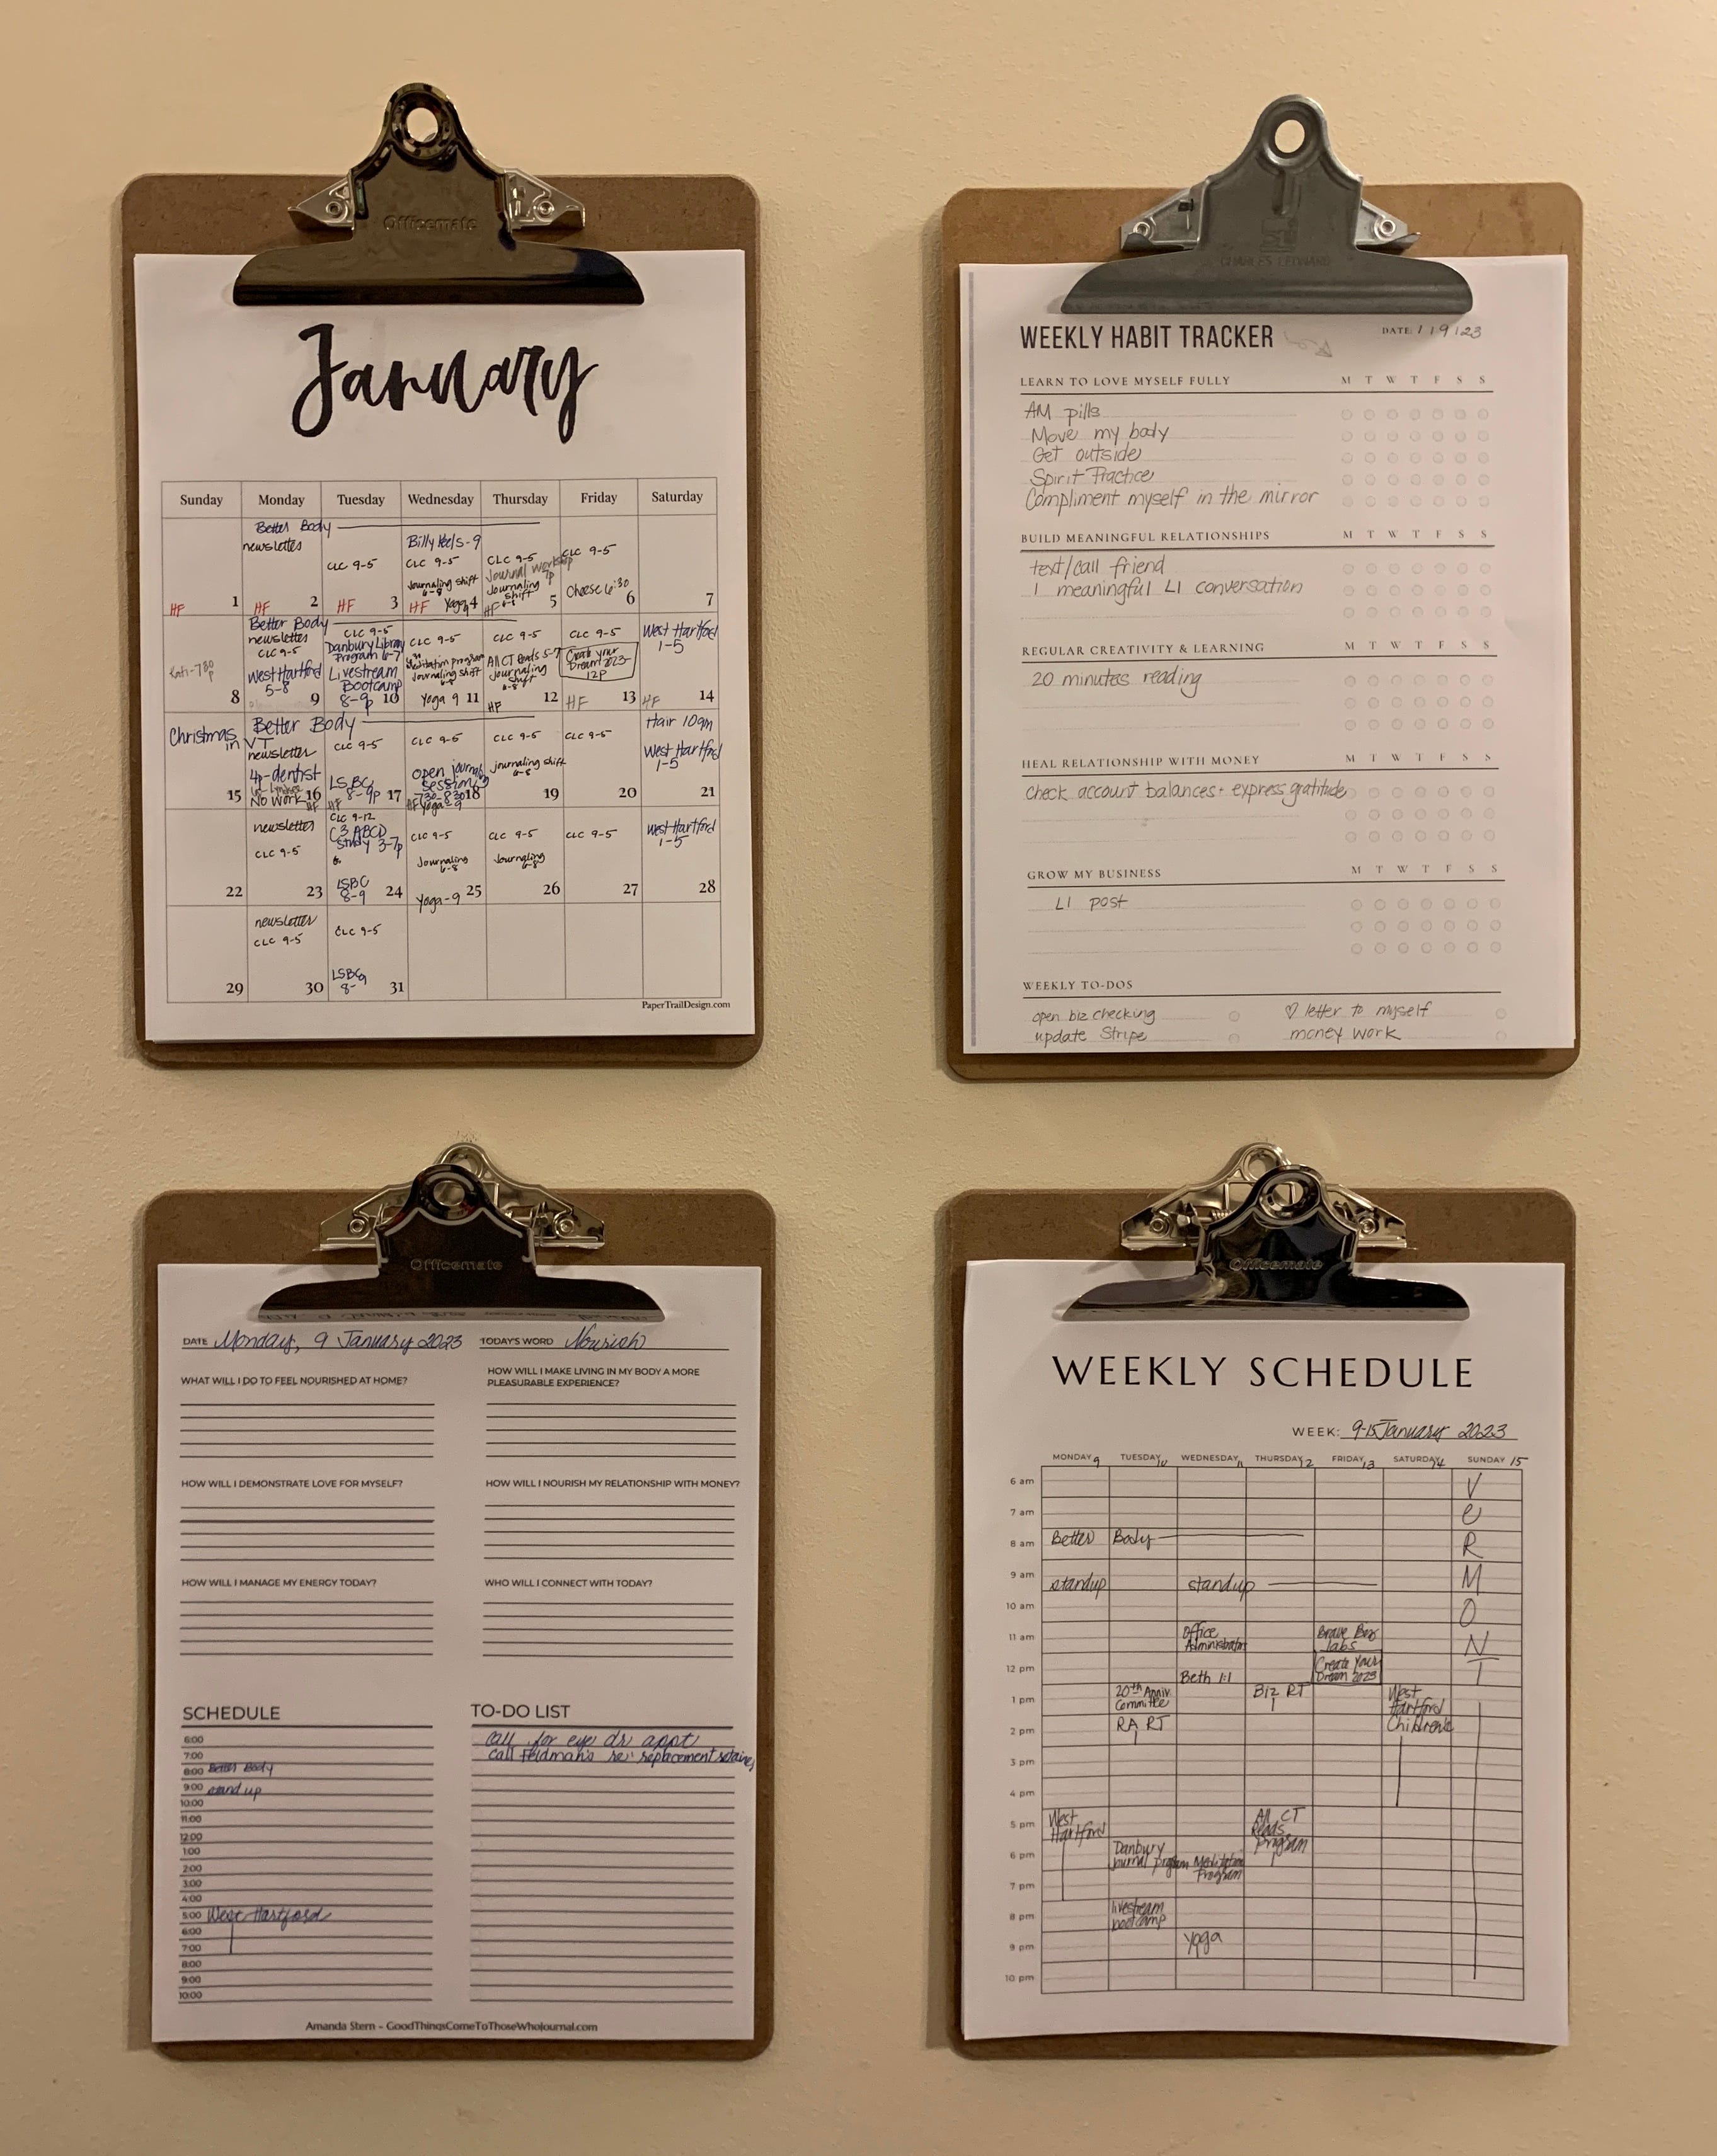 Officemate
January
Sunday Monday Tuesday Wednesday Thursday Friday Saturday
Better Body
newsletter
HF 1
HF 2
CLC 9-5
HF 3
Billy Heels-9
CLC 9-5
Journaling shift
6-8
HF Yoga 9 4
CLC 9-5
Journal workshop
7p
Journaling
shift
6-8
HF 5
CLC 9-5
Cheese 6:30
6
7
Kati-730
p
8
Better Body
newsletter
CLC 9-5
West Hartford
5-8
9
CLC 9-5
Danbury Library
Program 6-7
Livestream
Bootcamp
8-9p 10
CLC 9-5
Meditation program
Journaling shift
6-8
Yoga 9 11
CLC 9-5
All CT Reads 5-7
Journaling
shift
6-8
HF 12
CLC 9-5
Create your
Dream 2023-
12P
HF 13
West Hartford
1-5
HF 14
Christmas
in VT
15
Better Body
newsletter
4p-dentist
No work 16
HF
CLC 9-5
LSBC
8-9p 17
HF
CLC 9-5
open journal
session
730-830 18
HF Yoga-9
CLC 9-5
journaling shift
6-8
19
CLC 9-5
20
Hair 10am
West Hartford
1-5
21
22
newsletter
CLC 9-5
23
CLC 9-12
C3 ABCD
Study 3-7p
LSBC
8-9 24
CLC 9-5
Journaling
6-8
Yoga-9 25
CLC 9-5
Journaling
6-8
26
CLC 9-5
27
West Hartford
1-5
28
29
newsletter
CLC 9-5
30
CLC 9-5
LSBC
8- 31
PaperTrailDesign.com
CHARLES LEONARD
WEEKLY HABIT TRACKER DATE: 1/9/23
LEARN TO LOVE MYSELF FULLY M T W T F S S
AM pills
Move my body
Get outside
Spirit Practice
Compliment myself in the mirror
BUILD MEANINGFUL RELATIONSHIPS M T W T F S S
text/call friend
1 meaningful LI conversation
REGULAR CREATIVITY & LEARNING M T W T F S S
20 minutes reading
HEAL RELATIONSHIP WITH MONEY M T W T F S S
check account balances + express gratitude
GROW MY BUSINESS M T W T F S S
LI post
WEEKLY TO-DOS
open biz checking ♡ letter to myself
update Stripe money work
Officemate
DATE Monday, 9 January 2023 TODAY'S WORD Nourish
WHAT WILL I DO TO FEEL NOURISHED AT HOME?
HOW WILL I MAKE LIVING IN MY BODY A MORE
PLEASURABLE EXPERIENCE?
HOW WILL I DEMONSTRATE LOVE FOR MYSELF?
HOW WILL I NOURISH MY RELATIONSHIP WITH MONEY?
HOW WILL I MANAGE MY ENERGY TODAY?
WHO WILL I CONNECT WITH TODAY?
SCHEDULE
6:00
7:00
8:00 Better Body
9:00 stand up
10:00
11:00
12:00
1:00
2:00
3:00
4:00
5:00 West Hartford
6:00
7:00
8:00
9:00
10:00
TO-DO LIST
call for eye dr appt
call Feldman's re: replacement retainer
Amanda Stern - GoodThingsComeToThoseWhoJournal.com
Officemate
WEEKLY SCHEDULE
WEEK: 9-15 January 2023
MONDAY 9 TUESDAY 10 WEDNESDAY 11 THURSDAY 12 FRIDAY 13 SATURDAY 14 SUNDAY 15
6 am V
7 am e
8 am Better Body R
9 am standup standup M
10 am O
11 am Office Administration Brave Biz Labs N
12 pm Beth 1:1 Create Your Dream 2023 T
1 pm 20th Anniv. Committee Biz RT West Hartford
2 pm RA RT Children's
3 pm
4 pm
5 pm West Hartford All CT Reads Program
6 pm Danbury Journal program Meditation Program
7 pm
8 pm livestream bootcamp
9 pm yoga
10 pm